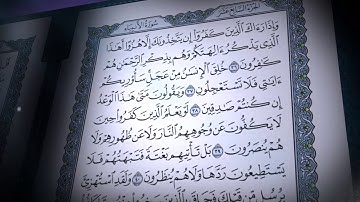 الجزء السابع عشر
سورة الأنبياء
وَإِذَا رَءَاكَ الَّذِينَ كَفَرُوا إِن يَتَّخِذُونَكَ إِلَّا هُزُوًا أَهَٰذَا
الَّذِي يَذْكُرُ ءَالِهَتَكُمْ وَهُم بِذِكْرِ الرَّحْمَٰنِ هُمْ
كَٰفِرُونَ ٣٦ خُلِقَ الْإِنسَٰنُ مِنْ عَجَلٍ سَأُو۟رِيكُمْ
ءَايَٰتِي فَلَا تَسْتَعْجِلُونِ ٣٧ وَيَقُولُونَ مَتَىٰ هَٰذَا الْوَعْدُ
إِن كُنتُمْ صَٰدِقِينَ ٣٨ لَوْ يَعْلَمُ الَّذِينَ كَفَرُوا حِينَ
لَا يَكُفُّونَ عَن وُجُوهِهِمُ النَّارَ وَلَا عَن ظُهُورِهِمْ وَلَا
هُمْ يُنصَرُونَ ٣٩ بَلْ تَأْتِيهِم بَغْتَةً فَتَبْهَتُهُمْ فَلَا
يَسْتَطِيعُونَ رَدَّهَا وَلَا هُمْ يُنظَرُونَ ٤٠ وَلَقَدِ اسْتُهْزِئَ
بِرُسُلٍ مِّن قَبْلِكَ فَحَاقَ بِالَّذِينَ